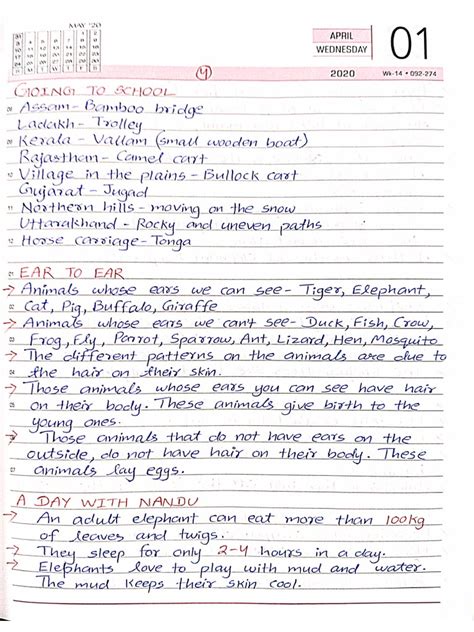 MAY '20
APRIL
WEDNESDAY
01
2020
Wk-14 • 092-274
(4)
GOING TO SCHOOL
Assam - Bamboo bridge
Ladakh - Trolley
Kerala - Vallam (small wooden boat)
Rajasthan - Camel cart
Village in the plains - Bullock cart
Gujarat - Jugad
Northern hills - moving on the snow
Uttarakhand - Rocky and uneven paths
Horse carriage - Tonga
EAR TO EAR
→ Animals whose ears we can see - Tiger, Elephant,
Cat, Pig, Buffalo, Giraffe
→ Animals whose ears we can't see - Duck, Fish, Crow,
Frog, Fly, Parrot, Sparrow, Ant, Lizard, Hen, Mosquito
→ The different patterns on the animals are due to
the hair on their skin.
→ Those animals whose ears you can see have hair
on their body. These animals give birth to the
young ones.
→ Those animals that do not have ears on the
outside, do not have hair on their body. These
animals lay eggs.
A DAY WITH NANDU
→ An adult elephant can eat more than 100kg
of leaves and twigs.
→ They sleep for only 2-4 hours in a day.
→ Elephants love to play with mud and water.
The mud keeps their skin cool.